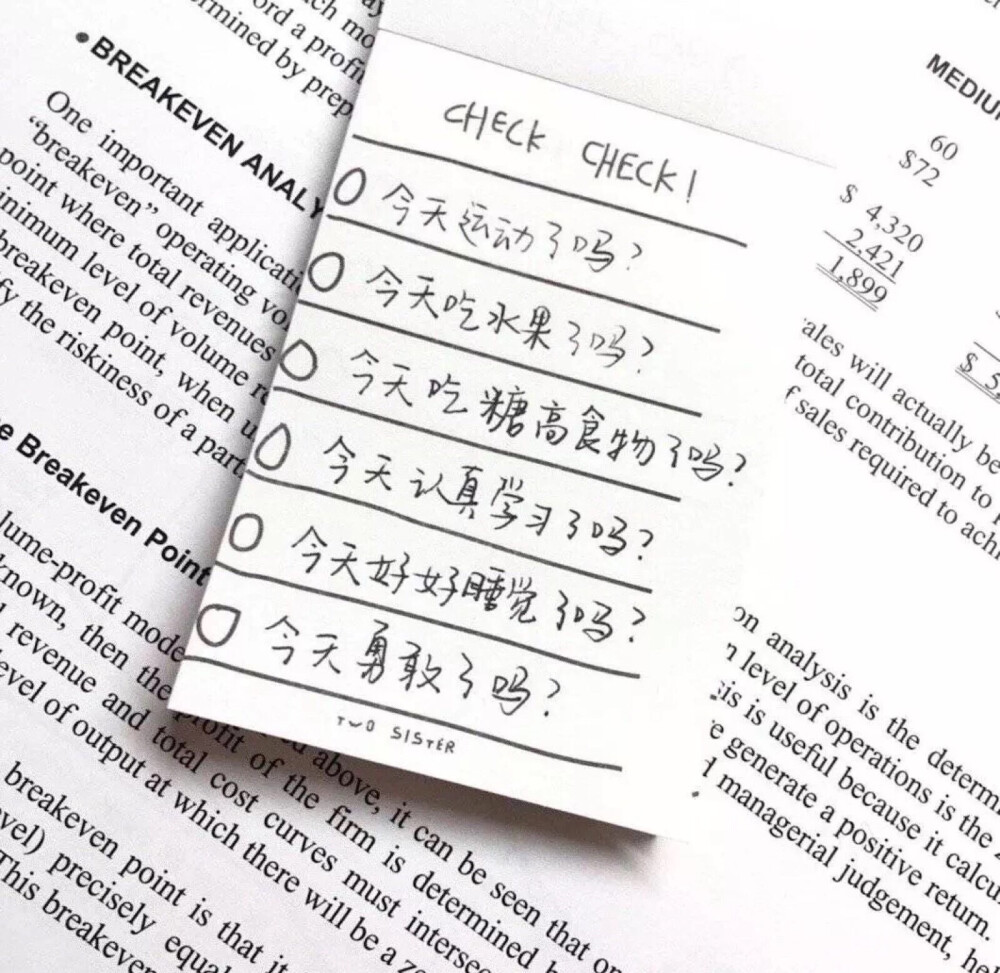 ord a profi
rmined by prep
• BREAKEVEN ANALY
One important applicati
“breakeven” operating vo
point where total revenues
inimum level of volume re
breakeven point, when u
fy the riskiness of a part
e Breakeven Point
lume-profit mode
known, then the
revenue and total cost curves must interse
evel of output at which there will be a ze
profit of the firm is determined b
above, it can be seen that on
breakeven point is that it
vel) precisely equal
This breakeve
CHECK CHECK!
今天运动了吗?
今天吃水果了吗?
今天吃糖高食物了吗?
今天认真学习了吗?
今天好好睡觉了吗?
今天勇敢了吗?
TWO SISTER
MEDIU
60
$72
$ 4,320
2,421
1,899
$ 5,
ales will actually be
total contribution to
f sales required to achi
on analysis is the determi
n level of operations is the
sis is useful because it calcu
e generate a positive return.
d managerial judgement, he